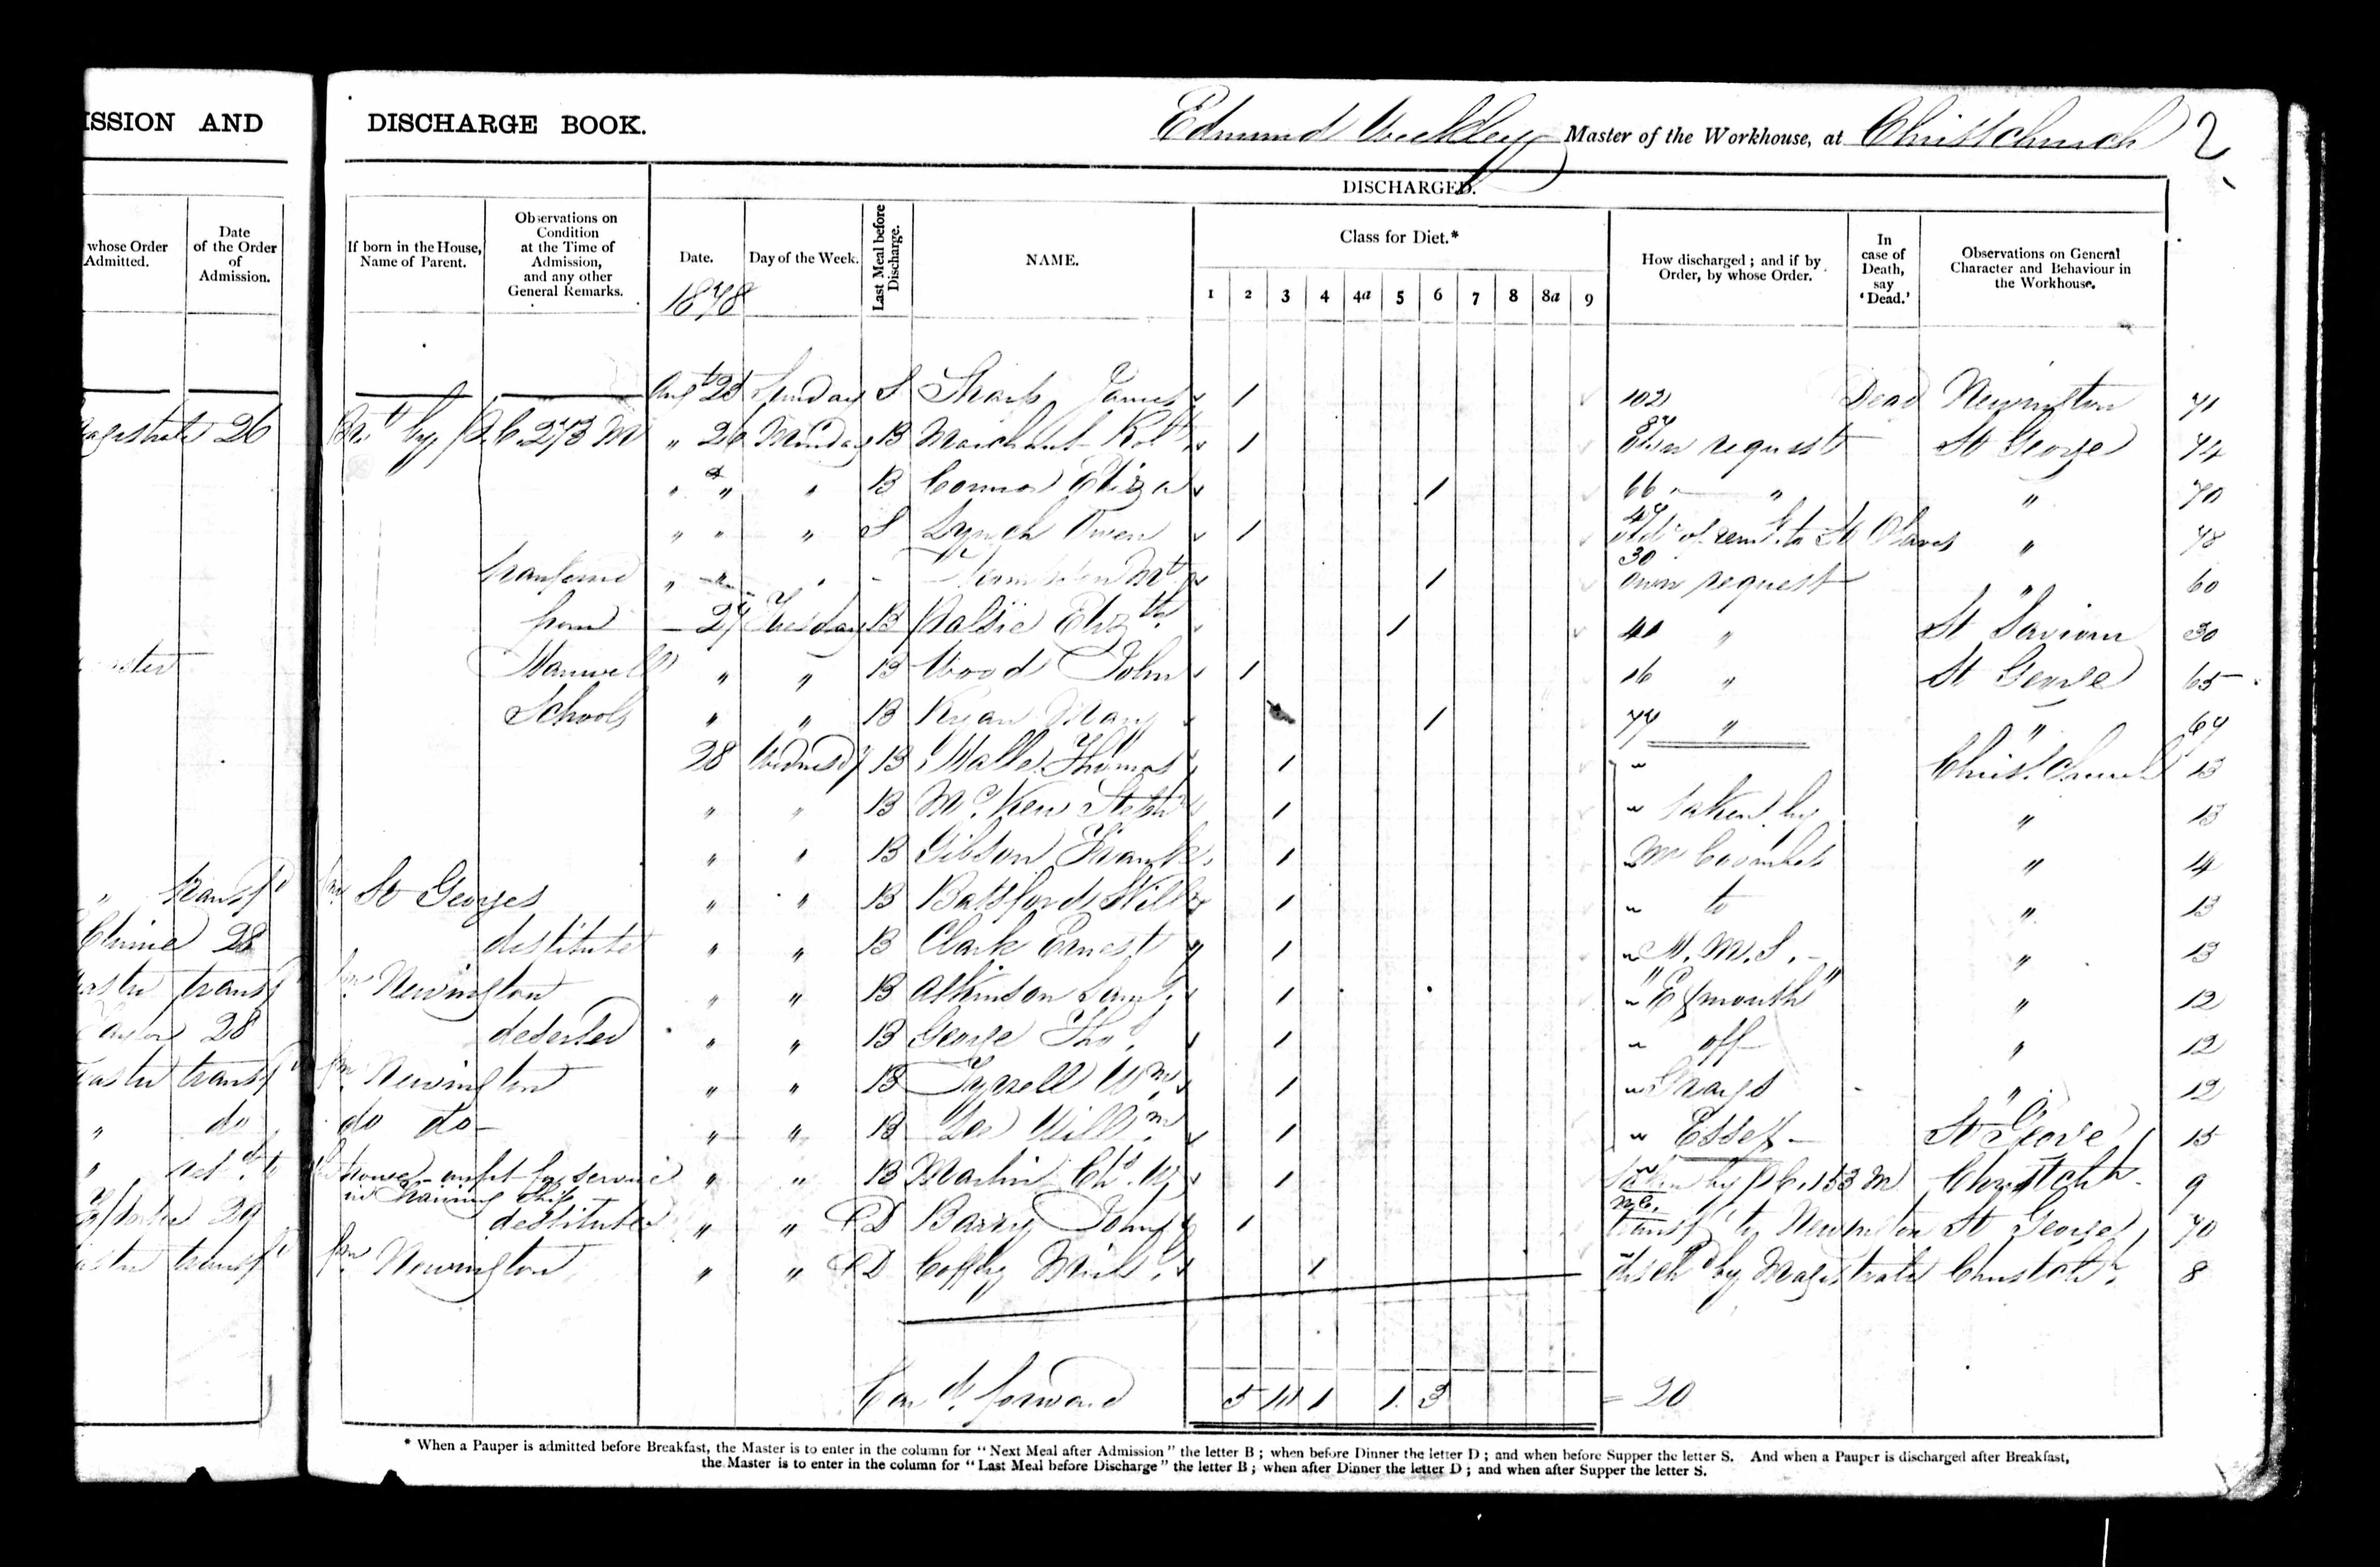 ISSION AND DISCHARGE BOOK. Edmund Weekley Master of the Workhouse, at Christchurch 2
DISCHARGED.
whose Order Admitted. Date of the Order of Admission. If born in the House, Name of Parent. Observations on Condition at the Time of Admission, and any other General Remarks. Date. Day of the Week. Last Meal before Discharge. NAME. Class for Diet.* How discharged; and if by Order, by whose Order. In case of Death, say 'Dead.' Observations on General Character and Behaviour in the Workhouse.
1878 1 2 3 4 4a 5 6 7 8 8a 9
Augt 25 Sunday S Sharp James 1 102 Dead Newington 71
26 by PC 273 M " 26 Monday B Robt 1 own request St George 74
" " " B Connor Eliza 1 66 " " 70
" " " S Lynch Owen 1 to St Olaves " 78
transferred " " " - 1 30 own request " 60
from 27 Tuesday B Elizth 1 " St Saviour 30
Hanwell " " B Wood John 1 16 " St George 65
Schools " " B Ryan Mary 1 77 " " 67
28 Wednesdy B Thomas 1 " Christchurch 13
" " B Mc Ken 1 " taken by " 13
" " B Gibson Frank 1 " Mr Coombes " 14
" transfd fm St Georges " " B Batsford Will 1 " to " 13
28 destitute " " B Clark Ernest 1 " H.M.S. " 13
transfd fm Newington " " B Atkinson Saml 1 " "Exmouth" " 12
28 deserted " " B George Thos 1 " off " 12
transfd fm Newington " " B Tyrrell Wm 1 " Grays " 12
" do do do " " B Lee Willm 1 " Essex St George 15
" unfit for service " " B Martin Chs W 1 taken by PC 153 M Christchh 9
in Training Ship
29 destitute " " D Barry John 1 transfd to Newington St George 70
transfd fm Newington " " D Coffey Michl 1 disch by Magistrate Christchh 8
Card forward 5 10 1 1 3 = 20
* When a Pauper is admitted before Breakfast, the Master is to enter in the column for "Next Meal after Admission" the letter B; when before Dinner the letter D; and when before Supper the letter S. And when a Pauper is discharged after Breakfast,
the Master is to enter in the column for "Last Meal before Discharge" the letter B; when after Dinner the letter D; and when after Supper the letter S.